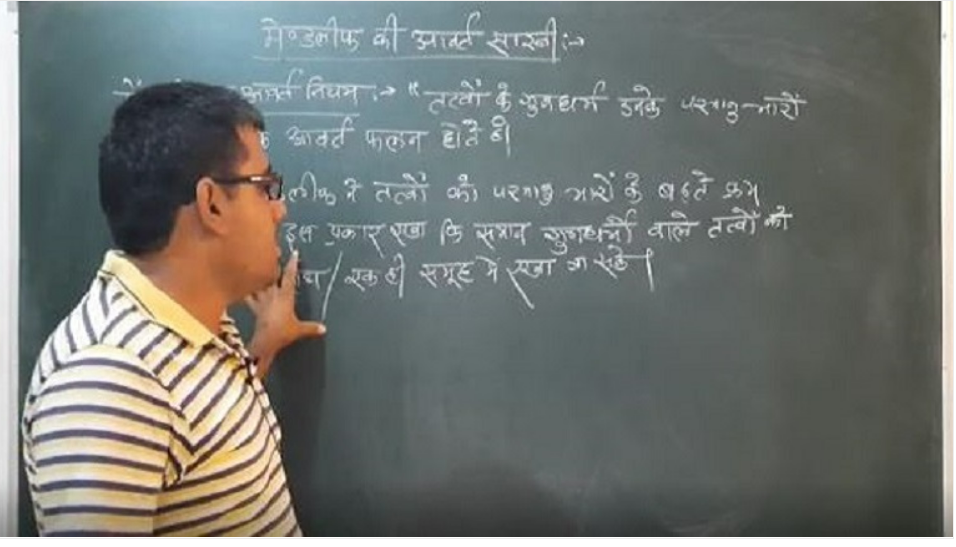 मेण्डलीफ की आवर्त सारणी :→
आवर्त नियम :→ "तत्वों के गुणधर्म उनके परमाणु-भारों
के आवर्त फलन होते हैं।
लीफ ने तत्वों को परमाणु भारों के बढ़ते क्रम
इस प्रकार रखा कि समान गुणधर्मों वाले तत्वों को
एक ही समूह में रखा जा सके।